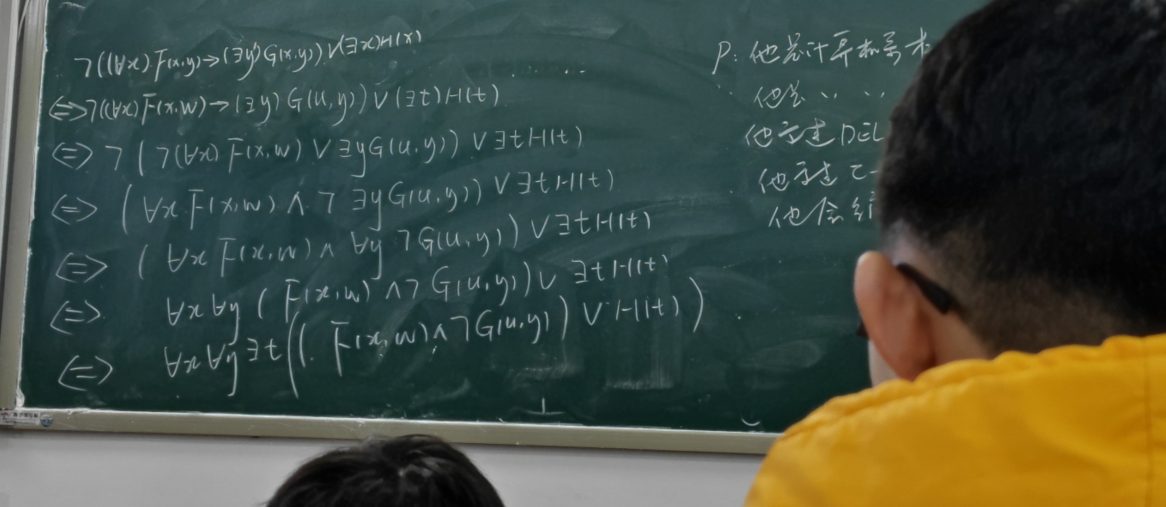 ¬((∀x)F(x,y)→(∃y)G(x,y))∨(∃x)H(x)
⇔¬((∀x)F(x,w)→(∃y)G(u,y))∨(∃t)H(t)
⇔ ¬(¬(∀x)F(x,w)∨∃yG(u,y))∨∃tH(t)
⇔ (∀xF(x,w)∧¬∃yG(u,y))∨∃tH(t)
⇔ (∀xF(x,w)∧∀y¬G(u,y))∨∃tH(t)
⇔ ∀x∀y(F(x,w)∧¬G(u,y))∨∃tH(t)
⇔ ∀x∀y∃t((F(x,w)∧¬G(u,y))∨H(t))
P:他是计算机系本
他
他 DEL
他
他